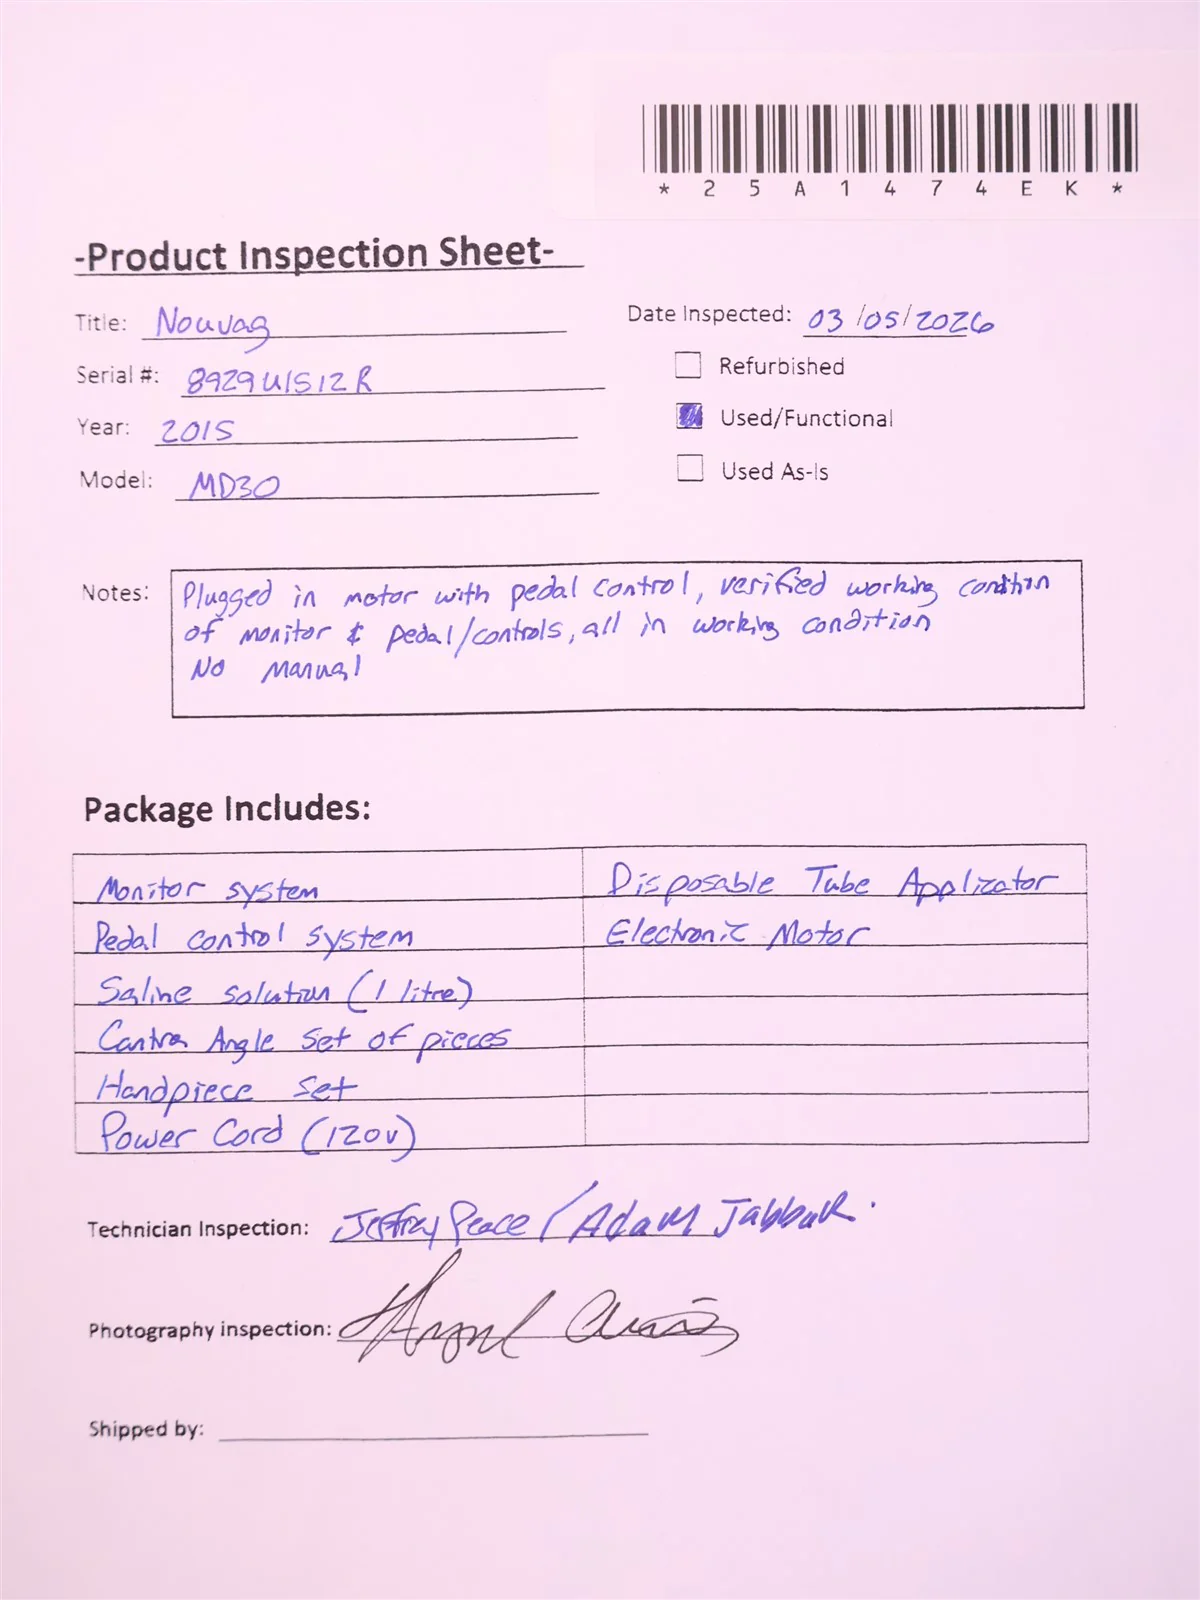 *25A1474EK*
-Product Inspection Sheet-
Title: Nouvag
Date Inspected: 03/05/2026
Serial #: 8929U1S12R
Refurbished
Year: 2015
Used/Functional
Model: MD30
Used As-Is
Notes: Plugged in motor with pedal control, verified working condition
of monitor & pedal/controls, all in working condition
No Manual
Package Includes:
Monitor system
Disposable Tube Applicator
Pedal control system
Electronic Motor
Saline solution (1 litre)
Contra Angle set of pieces
Handpiece set
Power Cord (120v)
Technician Inspection: Jeffray Peace / Adam Jabbour.
Photography inspection:
Shipped by: